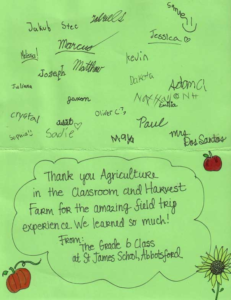 Jakub
Jessica
Marcus
Kevin
Joseph
Matthew
Dakota
Juliana
Adoma
Crystal
Oliver C.
Paul
Sadie
Mrs
Dos Santos
Thank you Agriculture
in the Classroom and Harvest
Farm for the amazing field trip
experience We learned so much!
From:
The Grade 6 Class
at St James School, Abbotsford